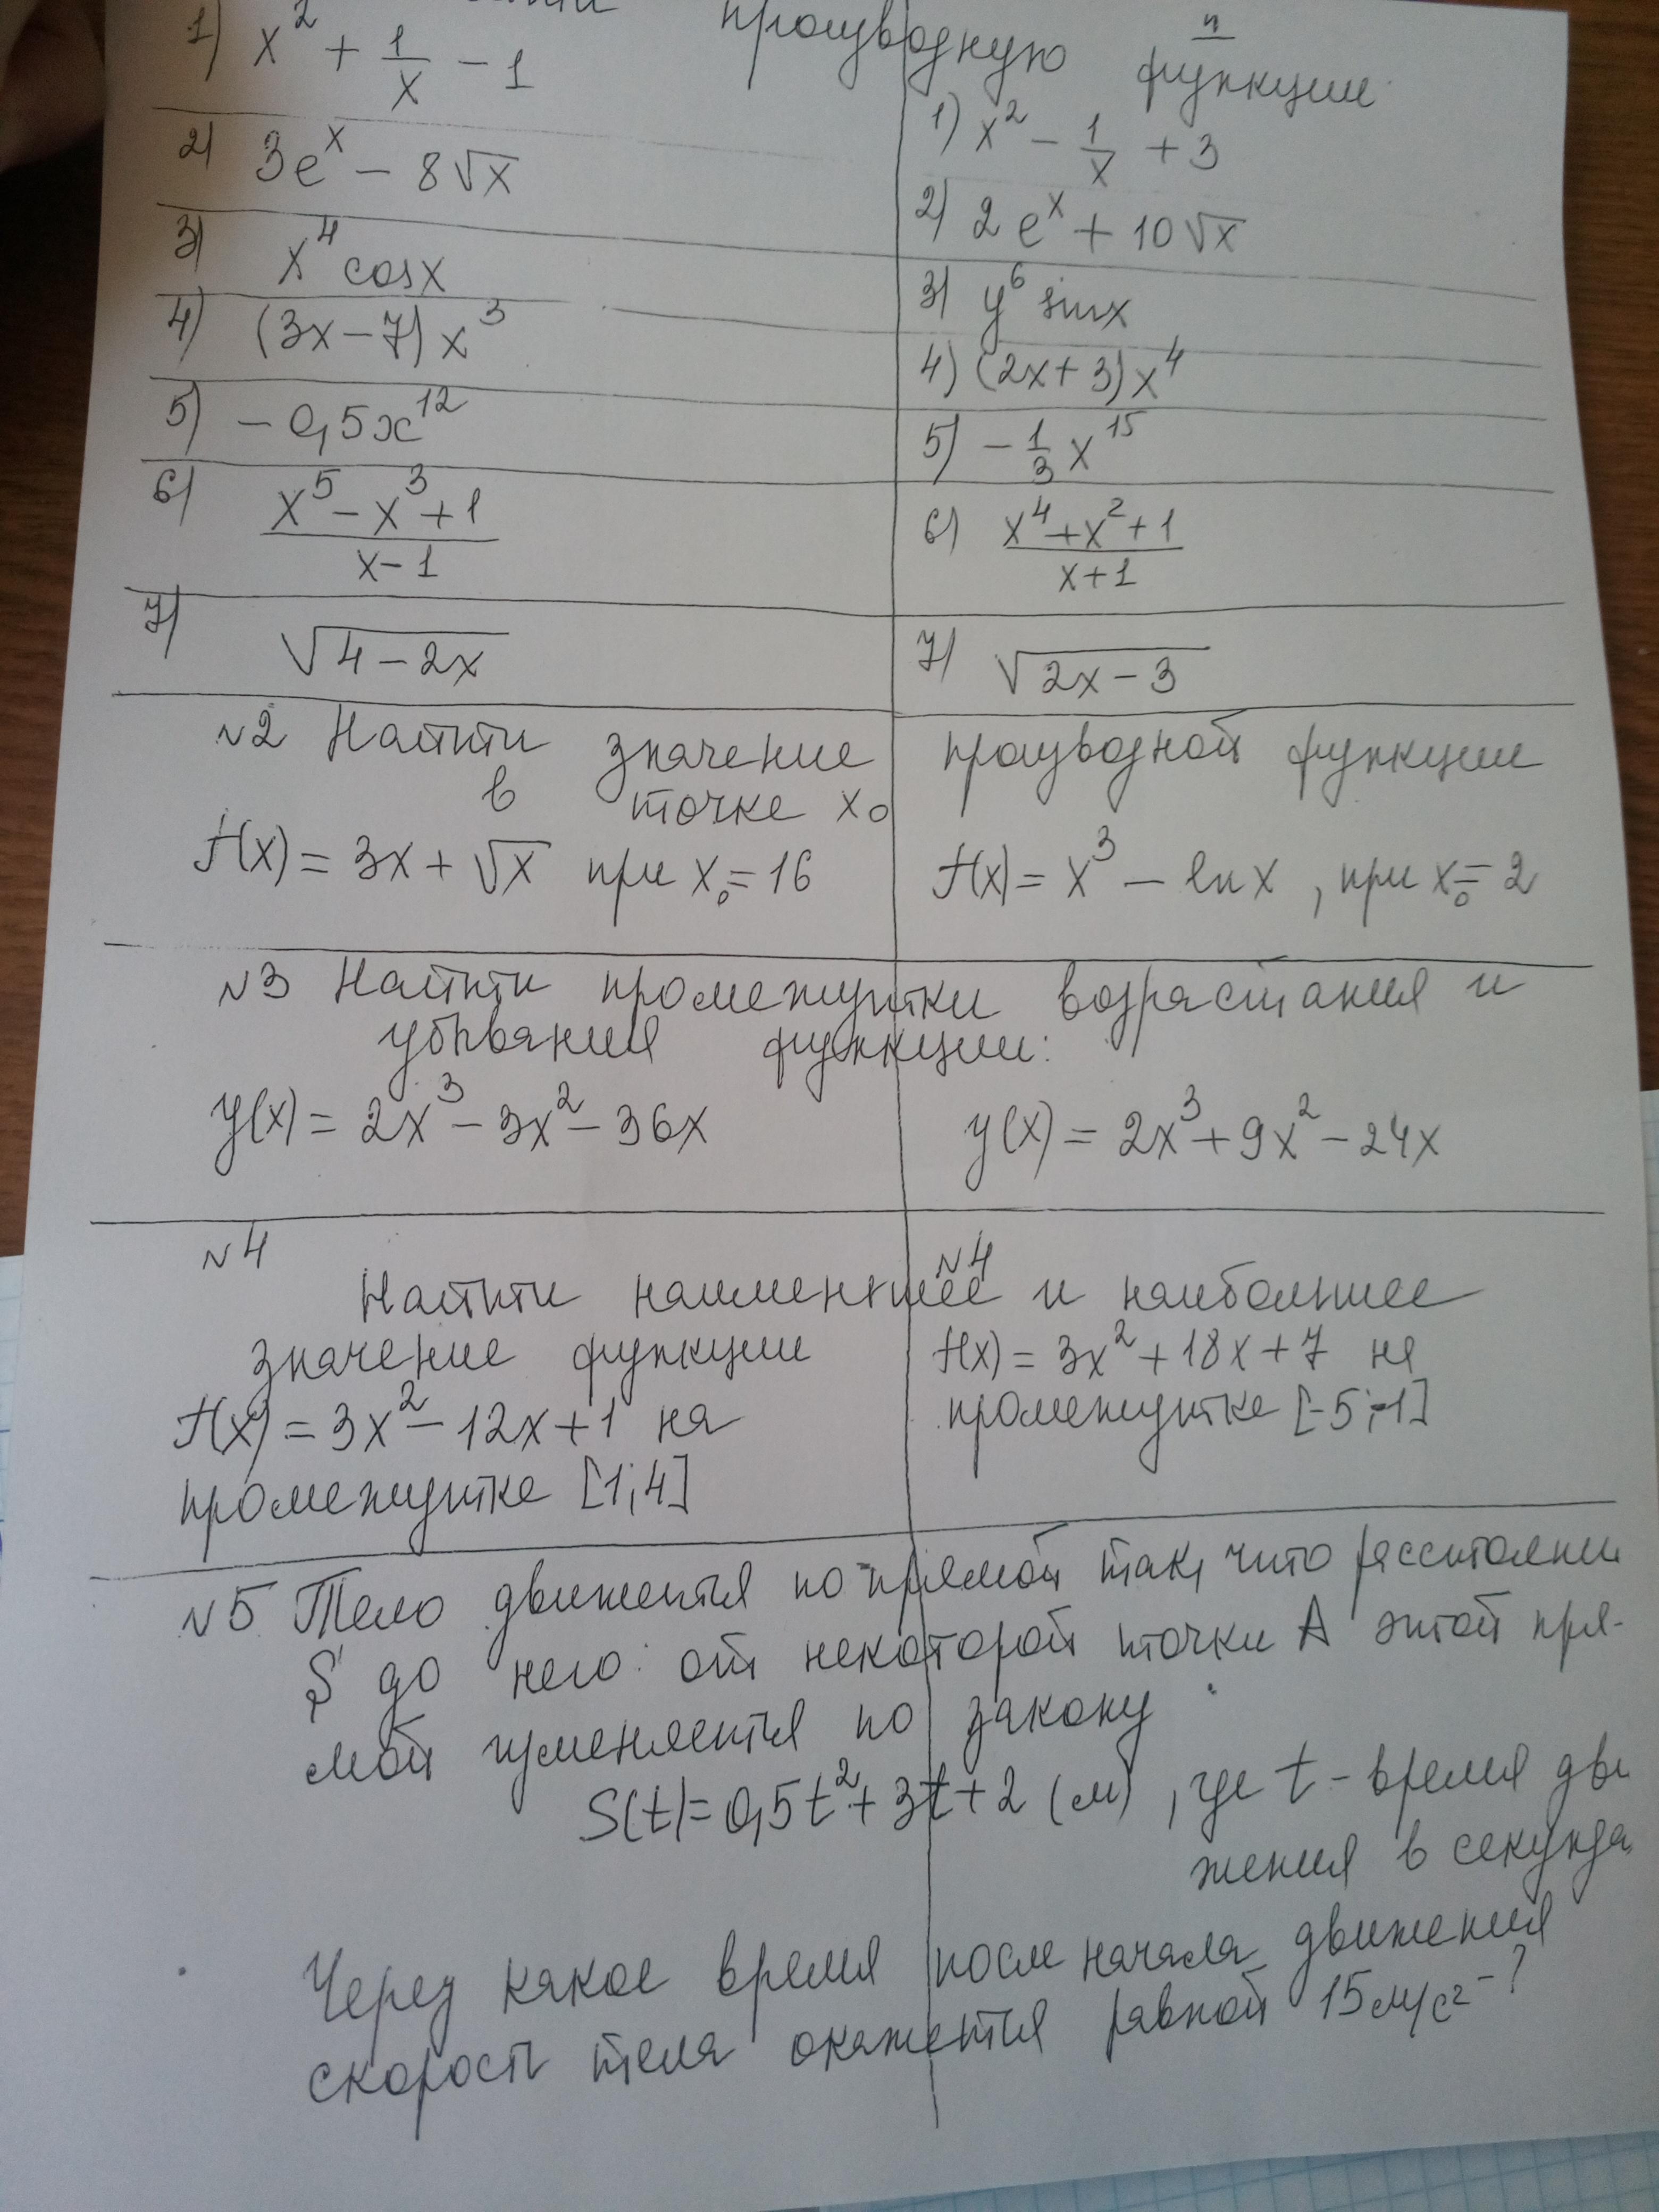 производную функции
II
1) x² + 1/x − 1
2) 3eˣ − 8√x
3) x⁴ cosx
4) (3x−7)x³
5) −0,5x¹²
6) (x⁵ − x³ + 1)/(x−1)
7) √(4−2x)
1) x² − 1/x + 3
2) 2eˣ + 10√x
3) y⁶ sinx
4) (2x+3)x⁴
5) −1/3 x¹⁵
6) (x⁴+x²+1)/(x+1)
7) √(2x−3)
№2 Найти значение производной функции
в точке x₀
f(x) = 3x + √x при x₀=16
f(x) = x³ − lnx, при x₀=2
№3 Найти промежутки возрастания и
убывания функции:
y(x) = 2x³ − 3x² − 36x
y(x) = 2x³ + 9x² − 24x
№4
№4
Найти наименьшее и наибольшее
значение функции
f(x) = 3x² − 12x + 1 на
промежутке [1; 4]
f(x) = 3x² + 18x + 7 на
промежутке [-5; -1]
№5 Тело движется по прямой так, что расстояни
S до него от некоторой точки A этой пря-
мой изменяется по закону
S(t)=0,5t²+3t+2 (м), где t – время дви
жения в секунда
Через какое время после начала движения
скорость тела окажется равной 15м/с² - ?